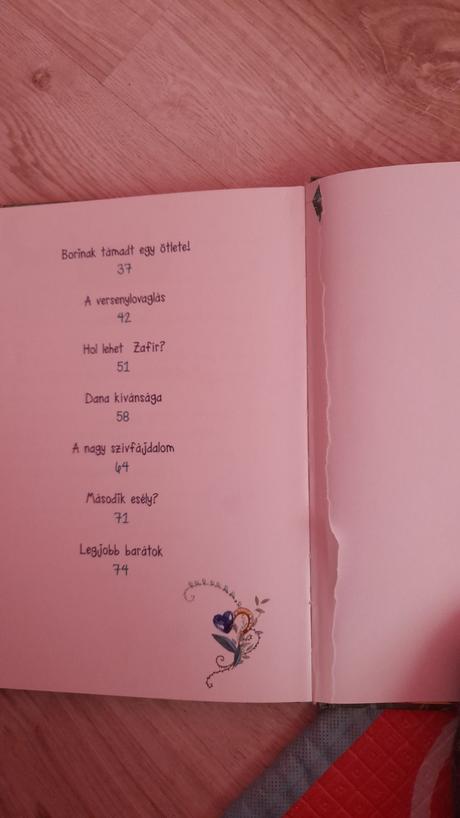 Borinak támadt egy ötlete!
37
A versenylovaglás
42
Hol lehet Zafír?
51
Dana kívánsága
58
A nagy szívfájdalom
64
Második esély?
71
Legjobb barátok
74